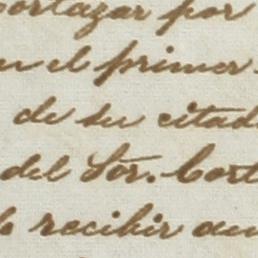 cortazar por
en el primer
de su citad
del Sor. Cort
recibir au